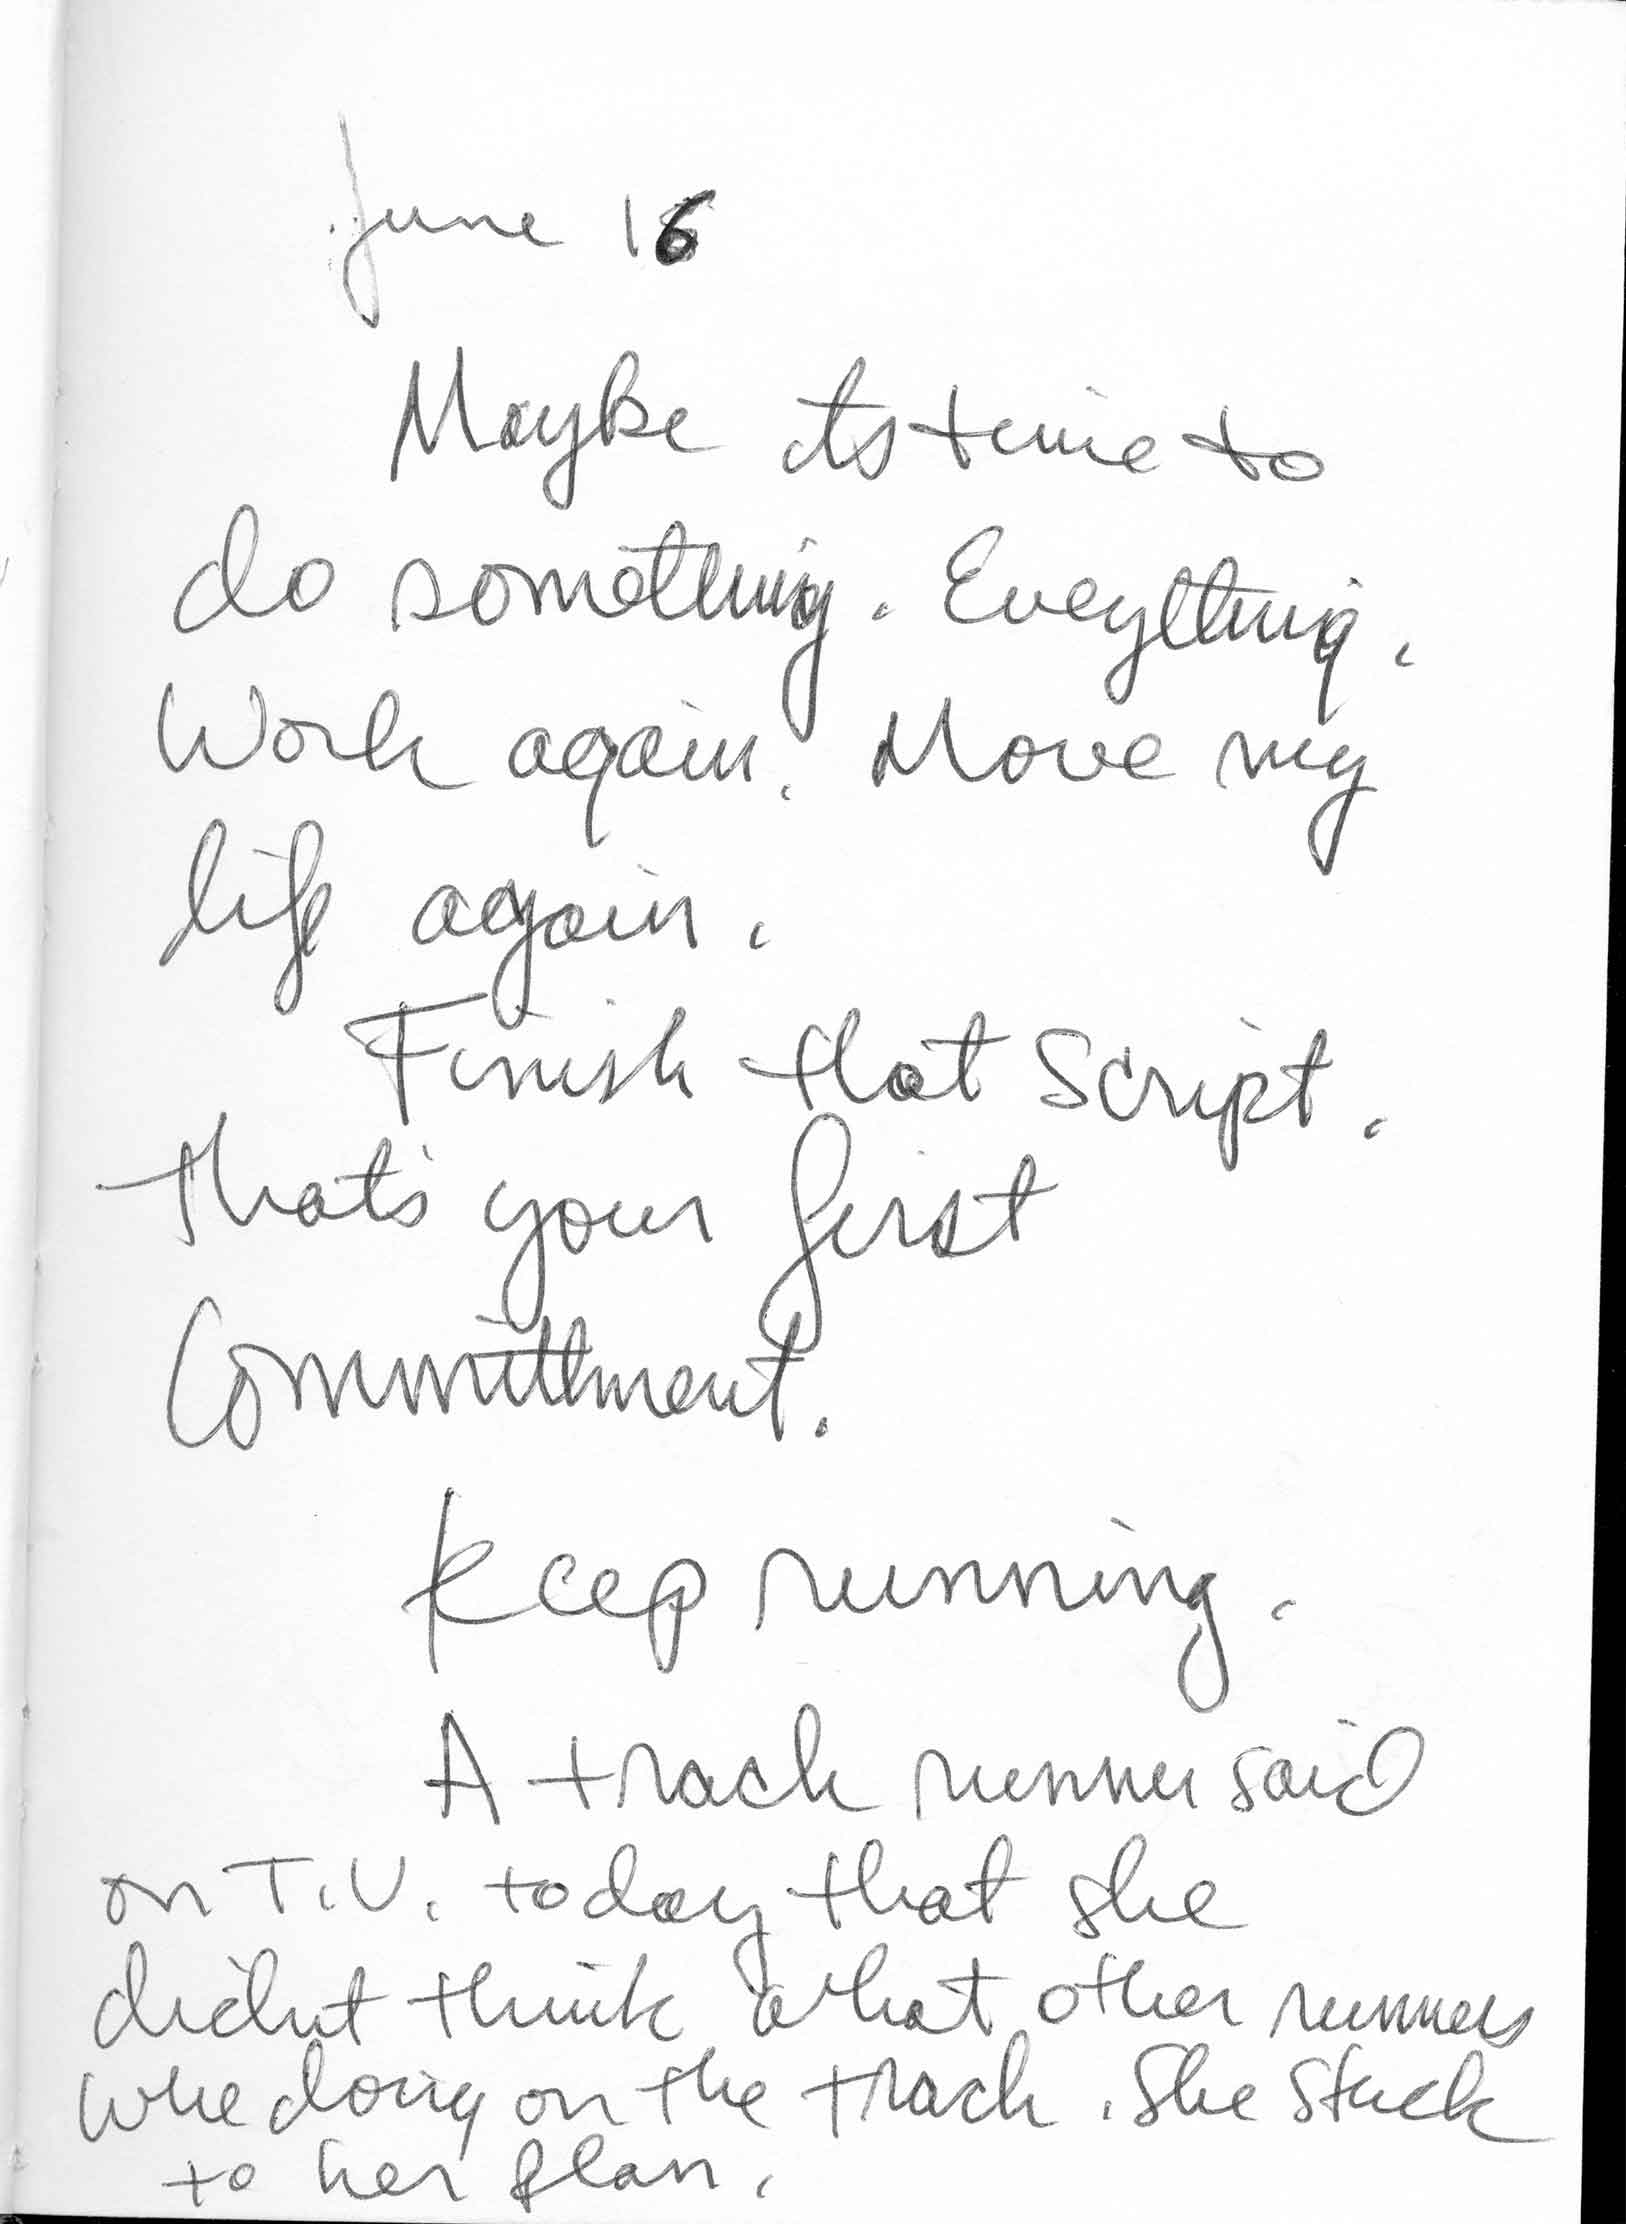 June 16
Maybe its time to
do something. Eveything.
Work again. Move my
life again.
Finish that script.
That's your first
Committment.
Keep running.
A track runner said
on T.V. today that she
didnt think what other runners
whe doing on the track. She stuck
to her plan.